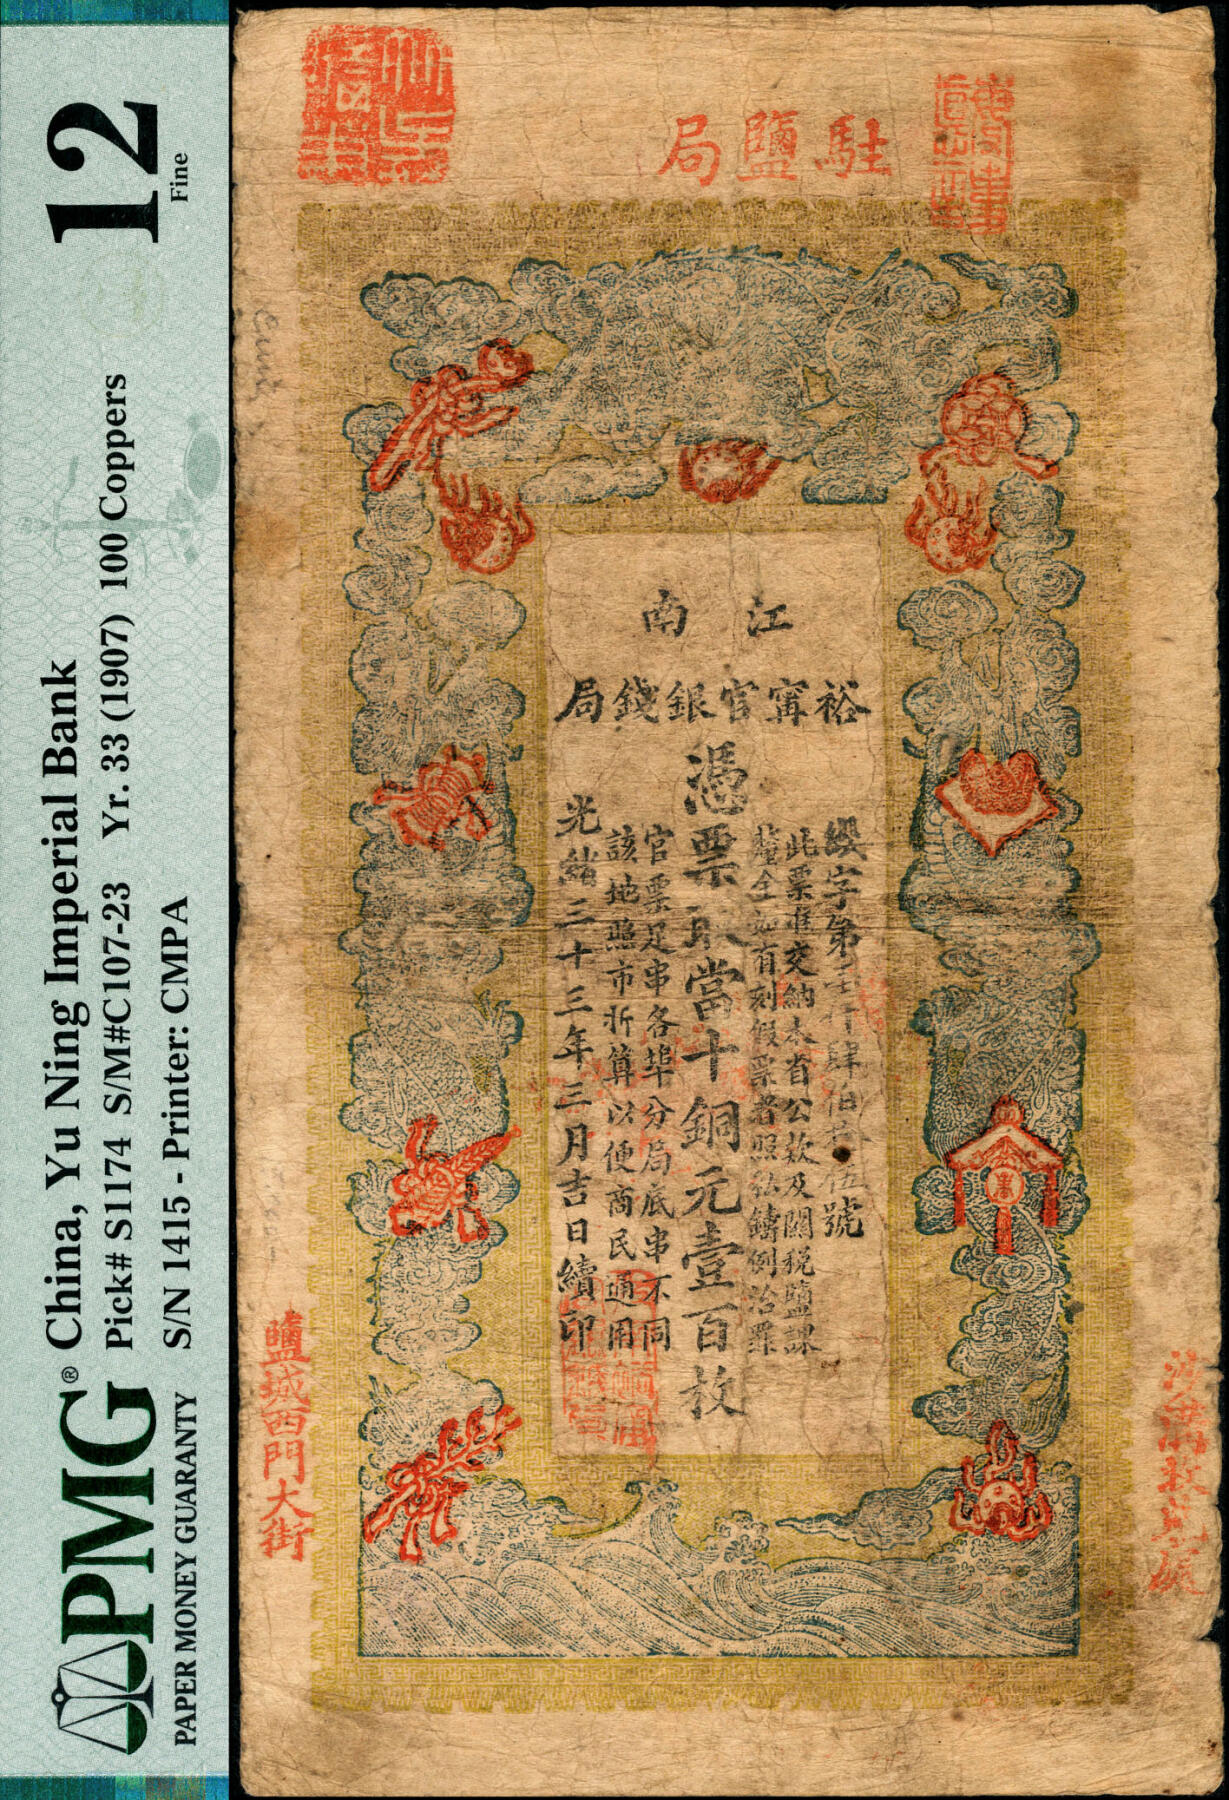 PMG® China, Yu Ning Imperial Bank 12
Pick# S1174 S/M#C107-23 Yr. 33 (1907) 100 Coppers
Fine
S/N 1415 - Printer: CMPA
PAPER MONEY GUARANTY
駐鹽局
江南
裕甯官銀錢局
字第壬仟肆佰拾伍號
此票准交納本省公款及關稅鹽課
釐金如有刻假票者照私鑄例治罪
憑票取當十銅元壹百枚
官票足串各埠分局底串不同
該地照市折算以便商民通用
光緒三十三年三月吉日續印
鹽城西門大街